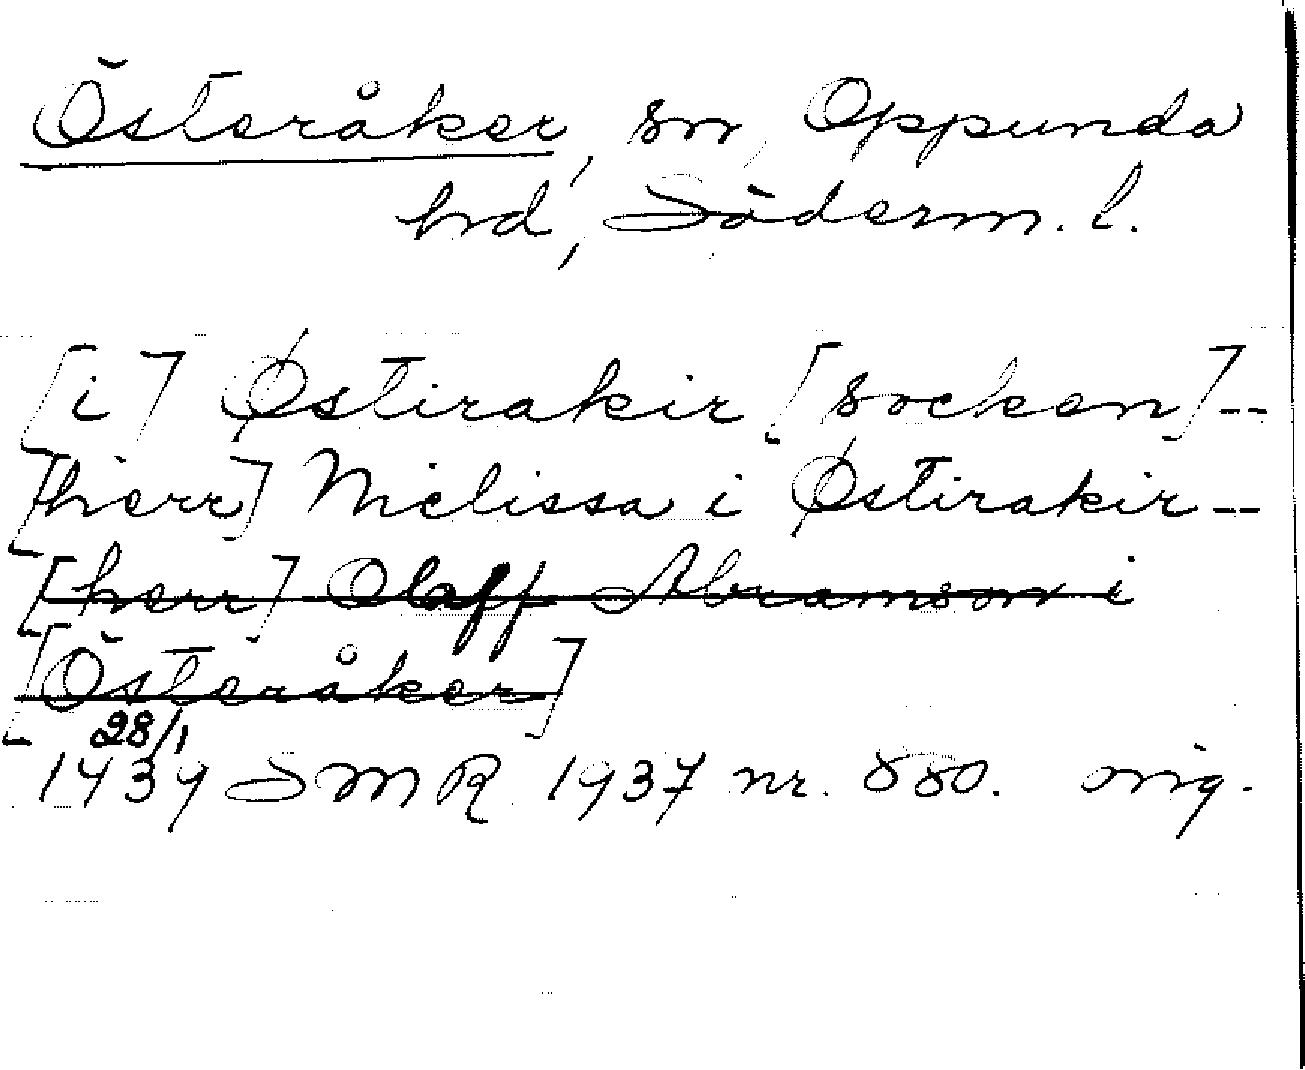 Österåker, sn, Oppunda
hd, Söderm. l.
[i] Østirakir [socken]--
[herr] Melissa i Østirakir--
[herr] Olaff Abramson i
[Österåker]
28/1
1439 SMR 1937 nr. 880. orig.